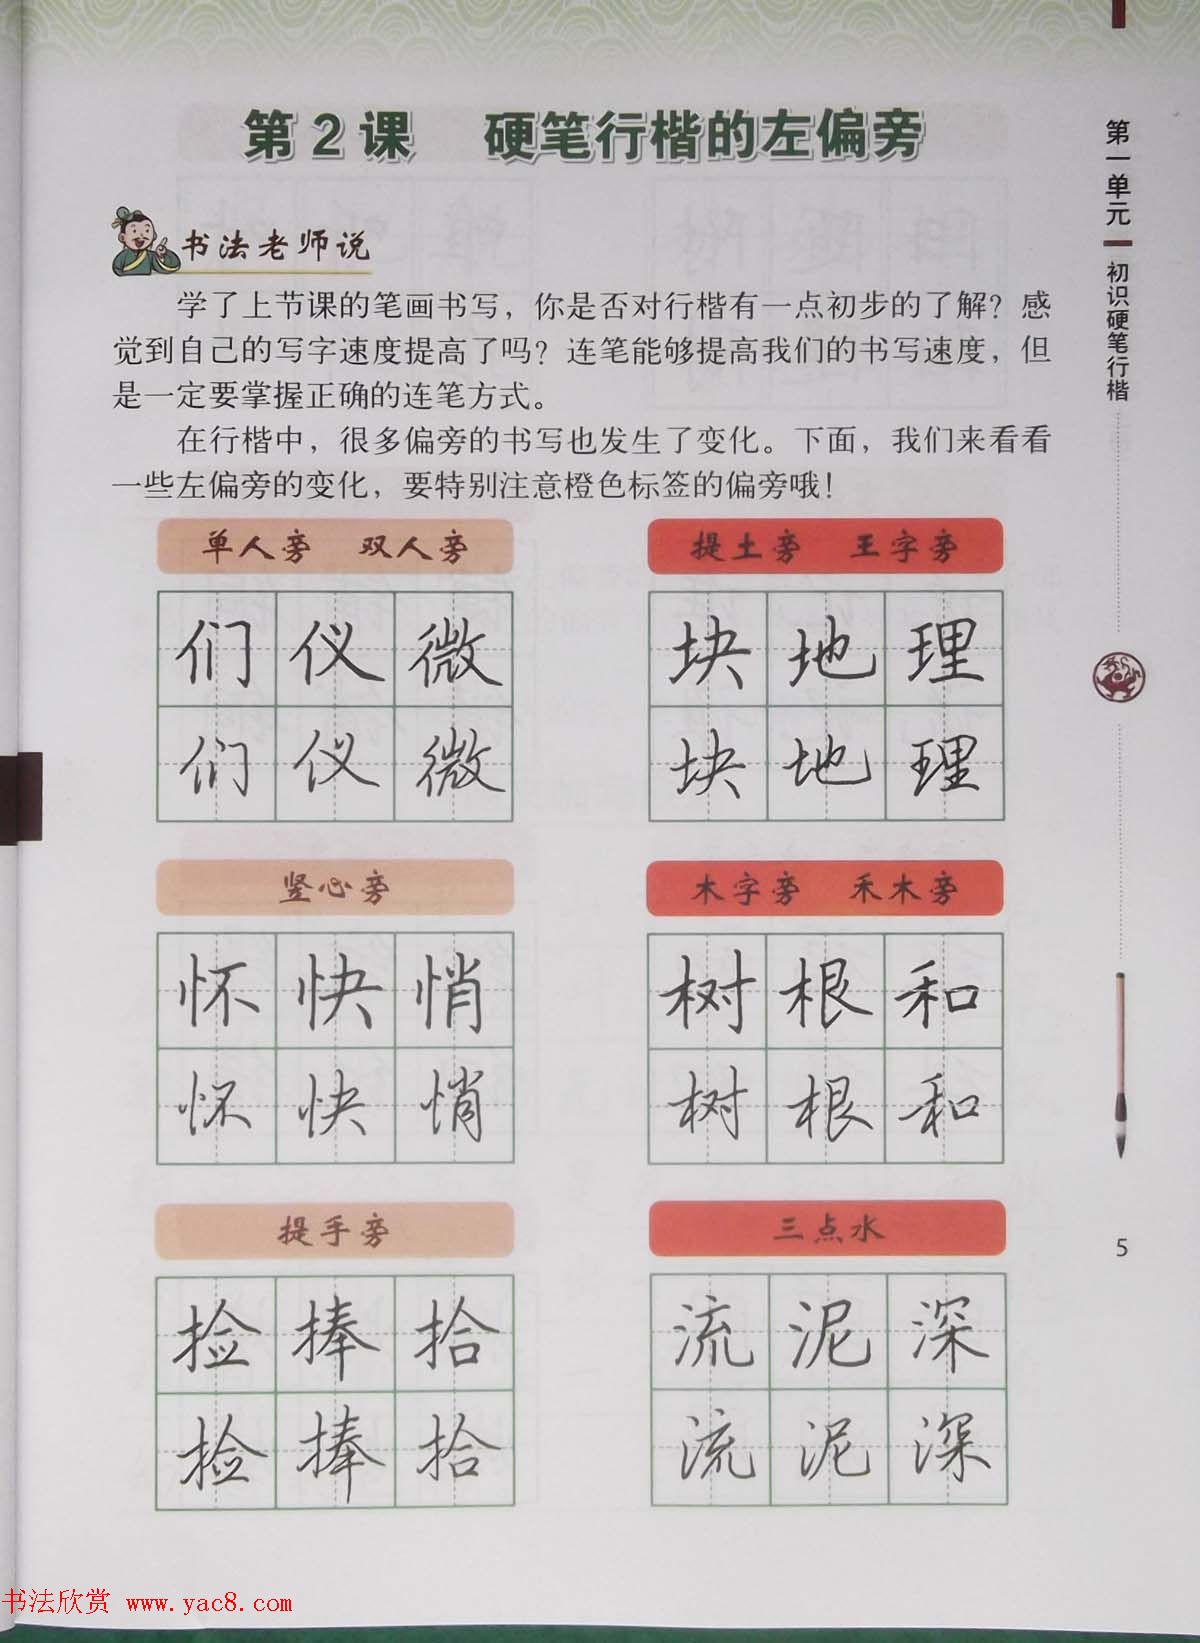 第2课 硬笔行楷的左偏旁
书法老师说
学了上节课的笔画书写，你是否对行楷有一点初步的了解？感
觉到自己的写字速度提高了吗？连笔能够提高我们的书写速度，但
是一定要掌握正确的连笔方式。
在行楷中，很多偏旁的书写也发生了变化。下面，我们来看看
一些左偏旁的变化，要特别注意橙色标签的偏旁哦！
单人旁 双人旁
们 仪 微
们 仪 微
提土旁 王字旁
块 地 理
块 地 理
竖心旁
怀 快 悄
怀 快 悄
木字旁 禾木旁
树 根 和
树 根 和
提手旁
捡 捧 拾
捡 捧 拾
三点水
流 泥 深
流 泥 深
第一单元 初识硬笔行楷
5
书法欣赏 www.yac8.com